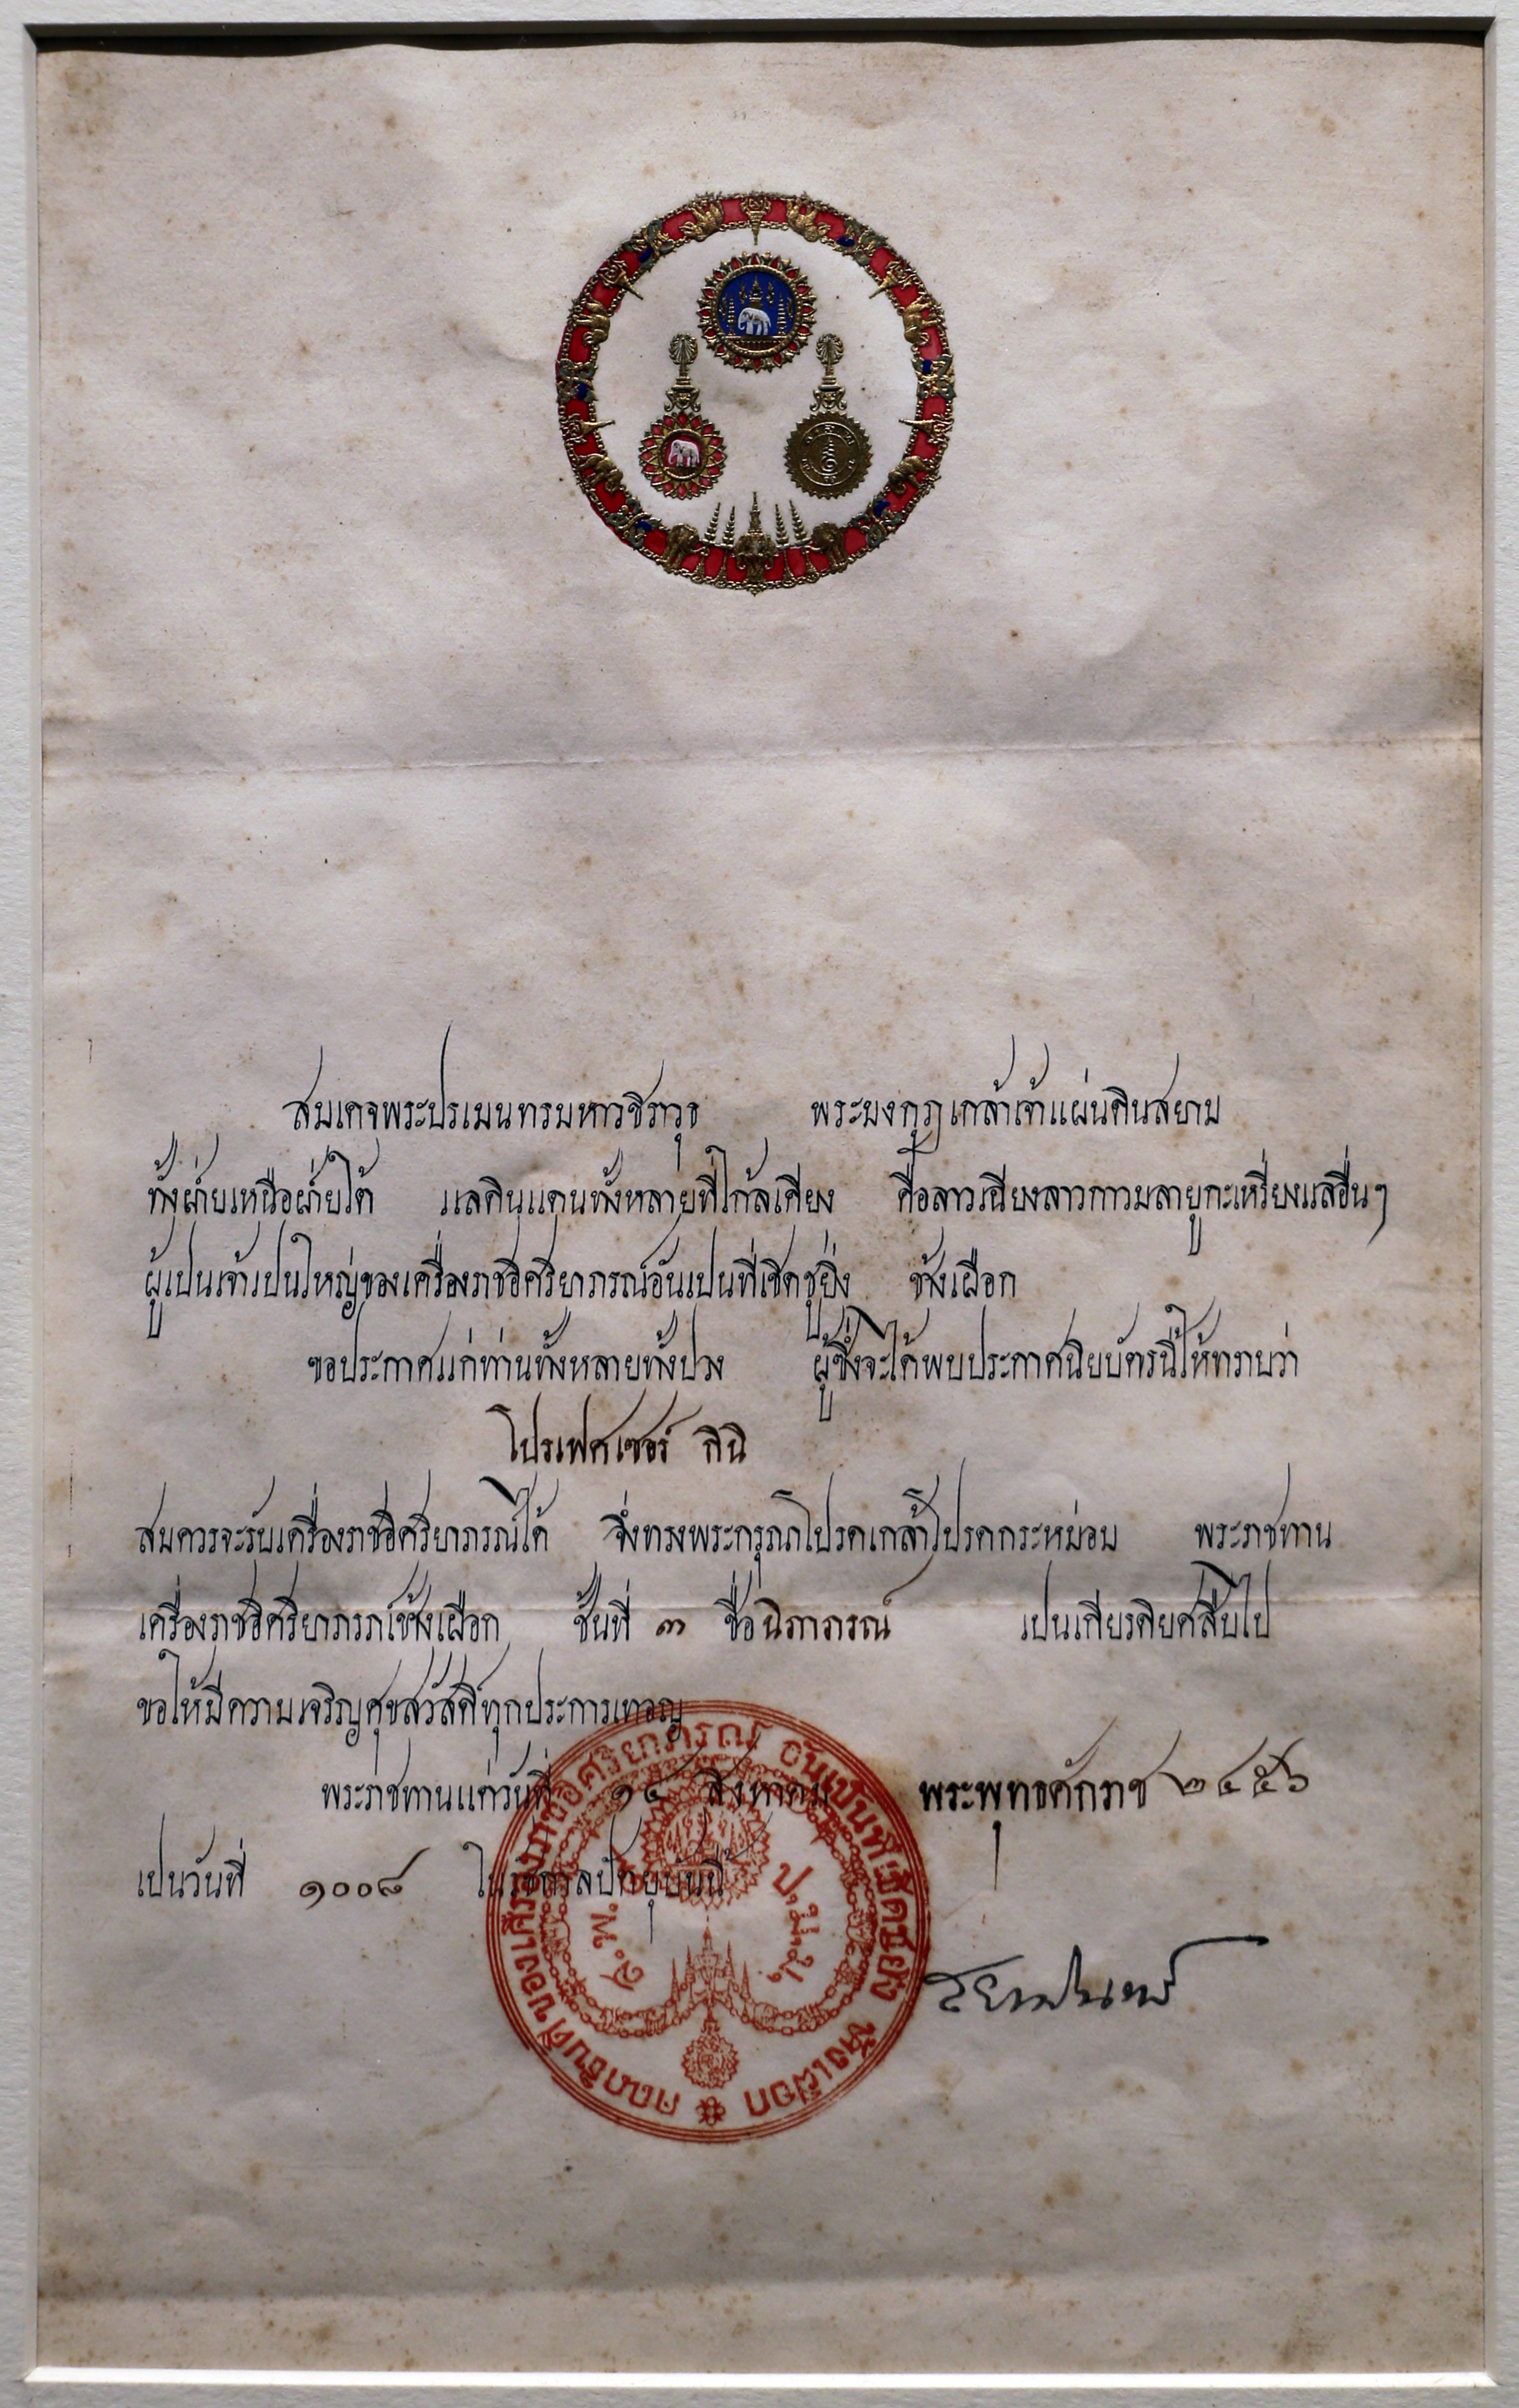 สมเดจพระปรเมนทรมหาวชิราวุธ พระมงกุฎเกล้าเจ้าแผ่นดินสยาม
ทั้งฝ่ายเหนือฝ่ายใต้ แลดินแดนทั้งหลายที่ใกล้เคียง คือลาวเฉียงลาวกาวมลายูกะเหรี่ยงแลอื่นๆ
ผู้เปนเจ้าเปนใหญ่ของเครื่องราชอิศริยาภรณ์อันเปนที่เชิดชูยิ่ง ช้างเผือก
ขอประกาศแก่ท่านทั้งหลายทั้งปวง ผู้ซึ่งจะได้พบประกาศนิยบัตรนี้ให้ทราบว่า
โปรเฟศเซอร์ กินิ
สมควรจะรับเครื่องราชอิศริยาภรณ์ได้ จึ่งทรงพระกรุณาโปรดเกล้าโปรดกระหม่อม พระราชทาน
เครื่องราชอิศริยาภรณ์ช้างเผือก ชั้นที่ ๓ ชื่อ นิภาภรณ์ เปนเกียรติยศสืบไป
ขอให้มีความเจริญศุขสวัสดิ์ทุกประการเทอญ
พระราชทานแต่วันที่ ๑๔ สิงหาคม พระพุทธศักราช ๒๔๕๖
เปนวันที่ ๑๐๐๘ ในรัชกาลปัตยุบันนี้
สยามินทร์
คณาธิบดี ของเครื่องราชอิศริยาภรณ์ อันเปนที่เชิดชูยิ่ง ช้างเผือก
จ.พ. ป.ม.ม.